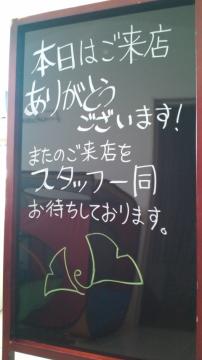 本日はご来店
ありがとう
ございます!
またのご来店を
スタッフ一同
お待ちしております。